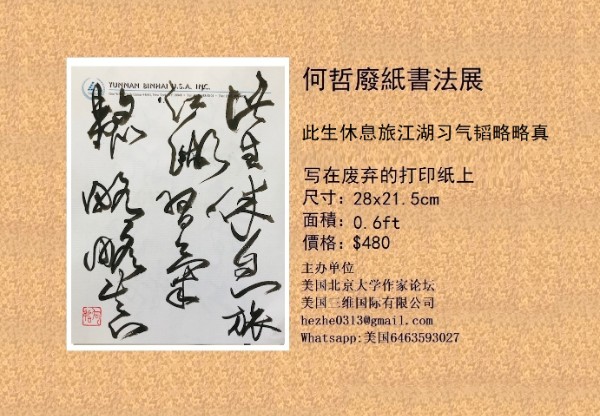 YUNNAN BINHAI U.S.A. INC.
此生休息旅
江湖習氣
韜略略真
何哲廢紙書法展
此生休息旅江湖习气韬略略真
写在废弃的打印纸上
尺寸：28x21.5cm
面積：0.6ft
價格：$480
主办单位
美国北京大学作家论坛
美国三维国际有限公司
hezhe0313@gmail.com
Whatsapp:美国6463593027